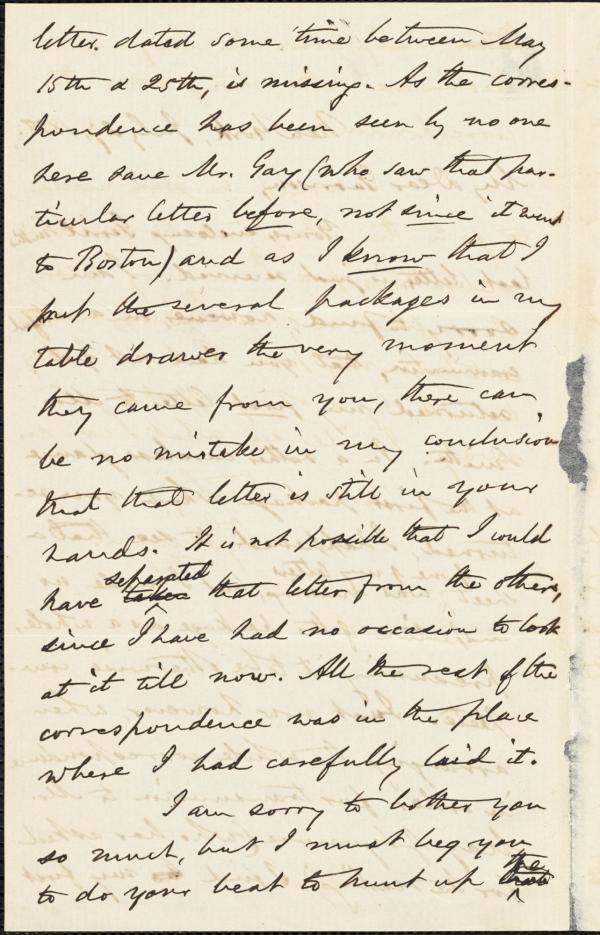 letter. dated some time between May
15th & 25th, is missing. As the corres-
pondence has been seen by no one
here save Mr. Gay (who saw that par-
ticular letter before, not since it went
to Boston) and as I know that I
put the several packages in my
table drawer the very moment
they came from you, there can
be no mistake in my conclusion
that that letter is still in your
hands. It is not possible that I could
have taken separated that letter from the others,
since I have had no occasion to look
at it till now. All the rest of the
correspondence was in the place
where I had carefully laid it.
I am sorry to bother you
so much, but I must beg you
to do your best to hunt up the